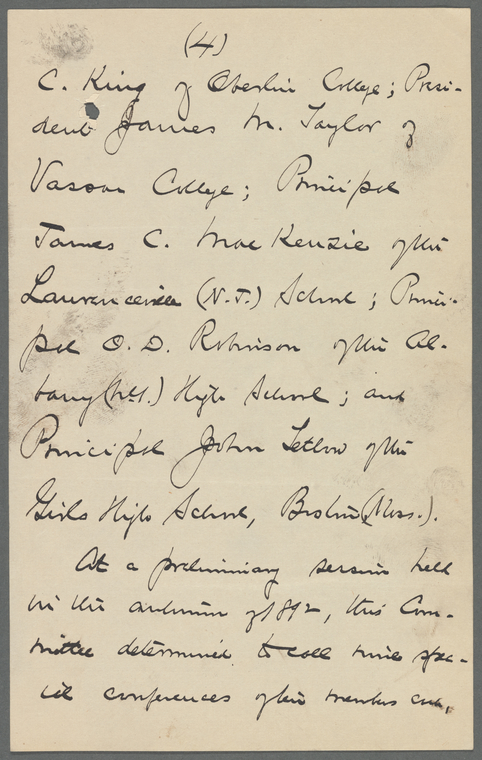 (4)
C. King of Oberlin College; Presi-
dent James M. Taylor of
Vassar College; Principal
James C. MacKenzie of the
Lawrenceville (N.J.) School; Princi-
pal O. D. Robinson of the Al-
bany (N.Y.) High School; and
Principal John Tetlow of the
Girls High School, Boston (Mass.).
At a preliminary session held
in the autumn of 1892, this Com-
mittee determined to call nine spe-
cial conferences of ten members each,